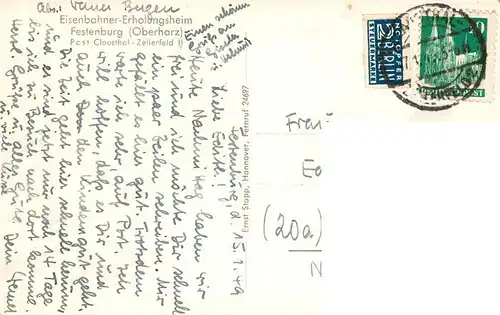 Abs. Werner Bergen
Eisenbahner-Erholungsheim
Festenburg (Oberharz)
Post Clausthal-Zellerfeld I
Einen schönen
Gruß an
Gisela
Festenburg, d. 15.1.49
Liebe Edith!
Heute Nachmittag haben wir
frei und ich möchte Dir schnell
ein paar Zeilen schreiben. Mir
gefällt es hier gut. Trotzdem
warte ich sehr auf Post. Ich
will hoffen, daß es Dir und
auch den Kindern gut geht.
Die Zeit geht hier schnell herum,
und es sind jetzt nur noch 14 Tage
bis ich zu Besuch nach dort komme.
Herzl. Grüße u. alles Gute Dein
u. viele Küsse
Ernst Stopp, Hannover, Fernruf 24697
NOTOPFER
2 BERLIN
STEUERMARKE
DEUTSCHE POST
Frau
(20a)